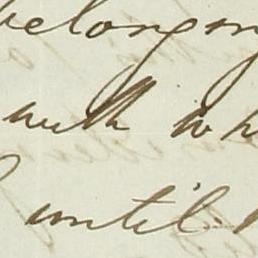 belonging
with wh
until